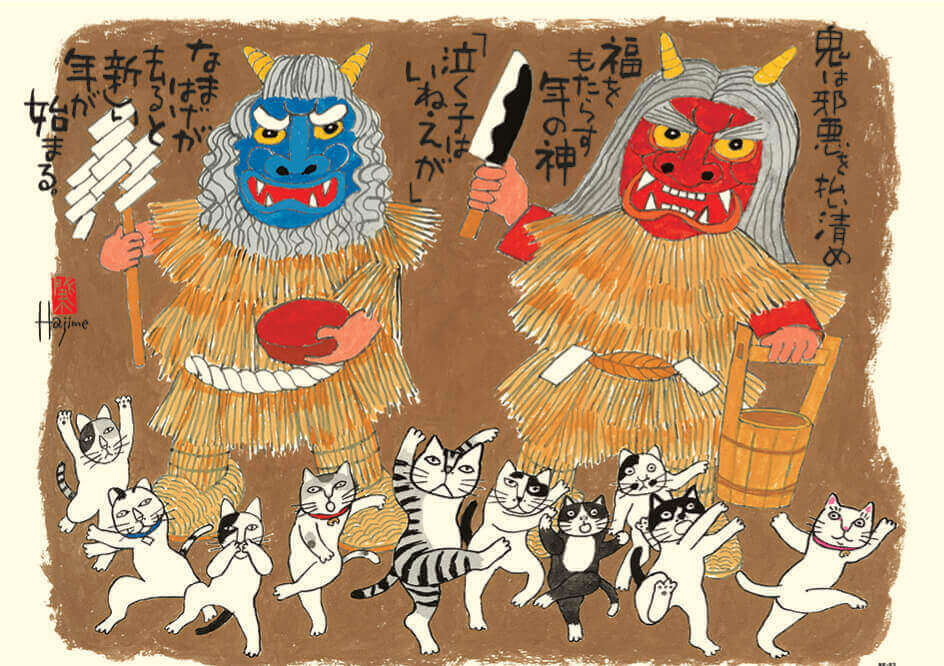 鬼は邪悪を払清め
福を
もたらす
年の神
「泣く子は
いねえが」
なま
はげが
去ると
新しい
年が
始まる。
Hajime